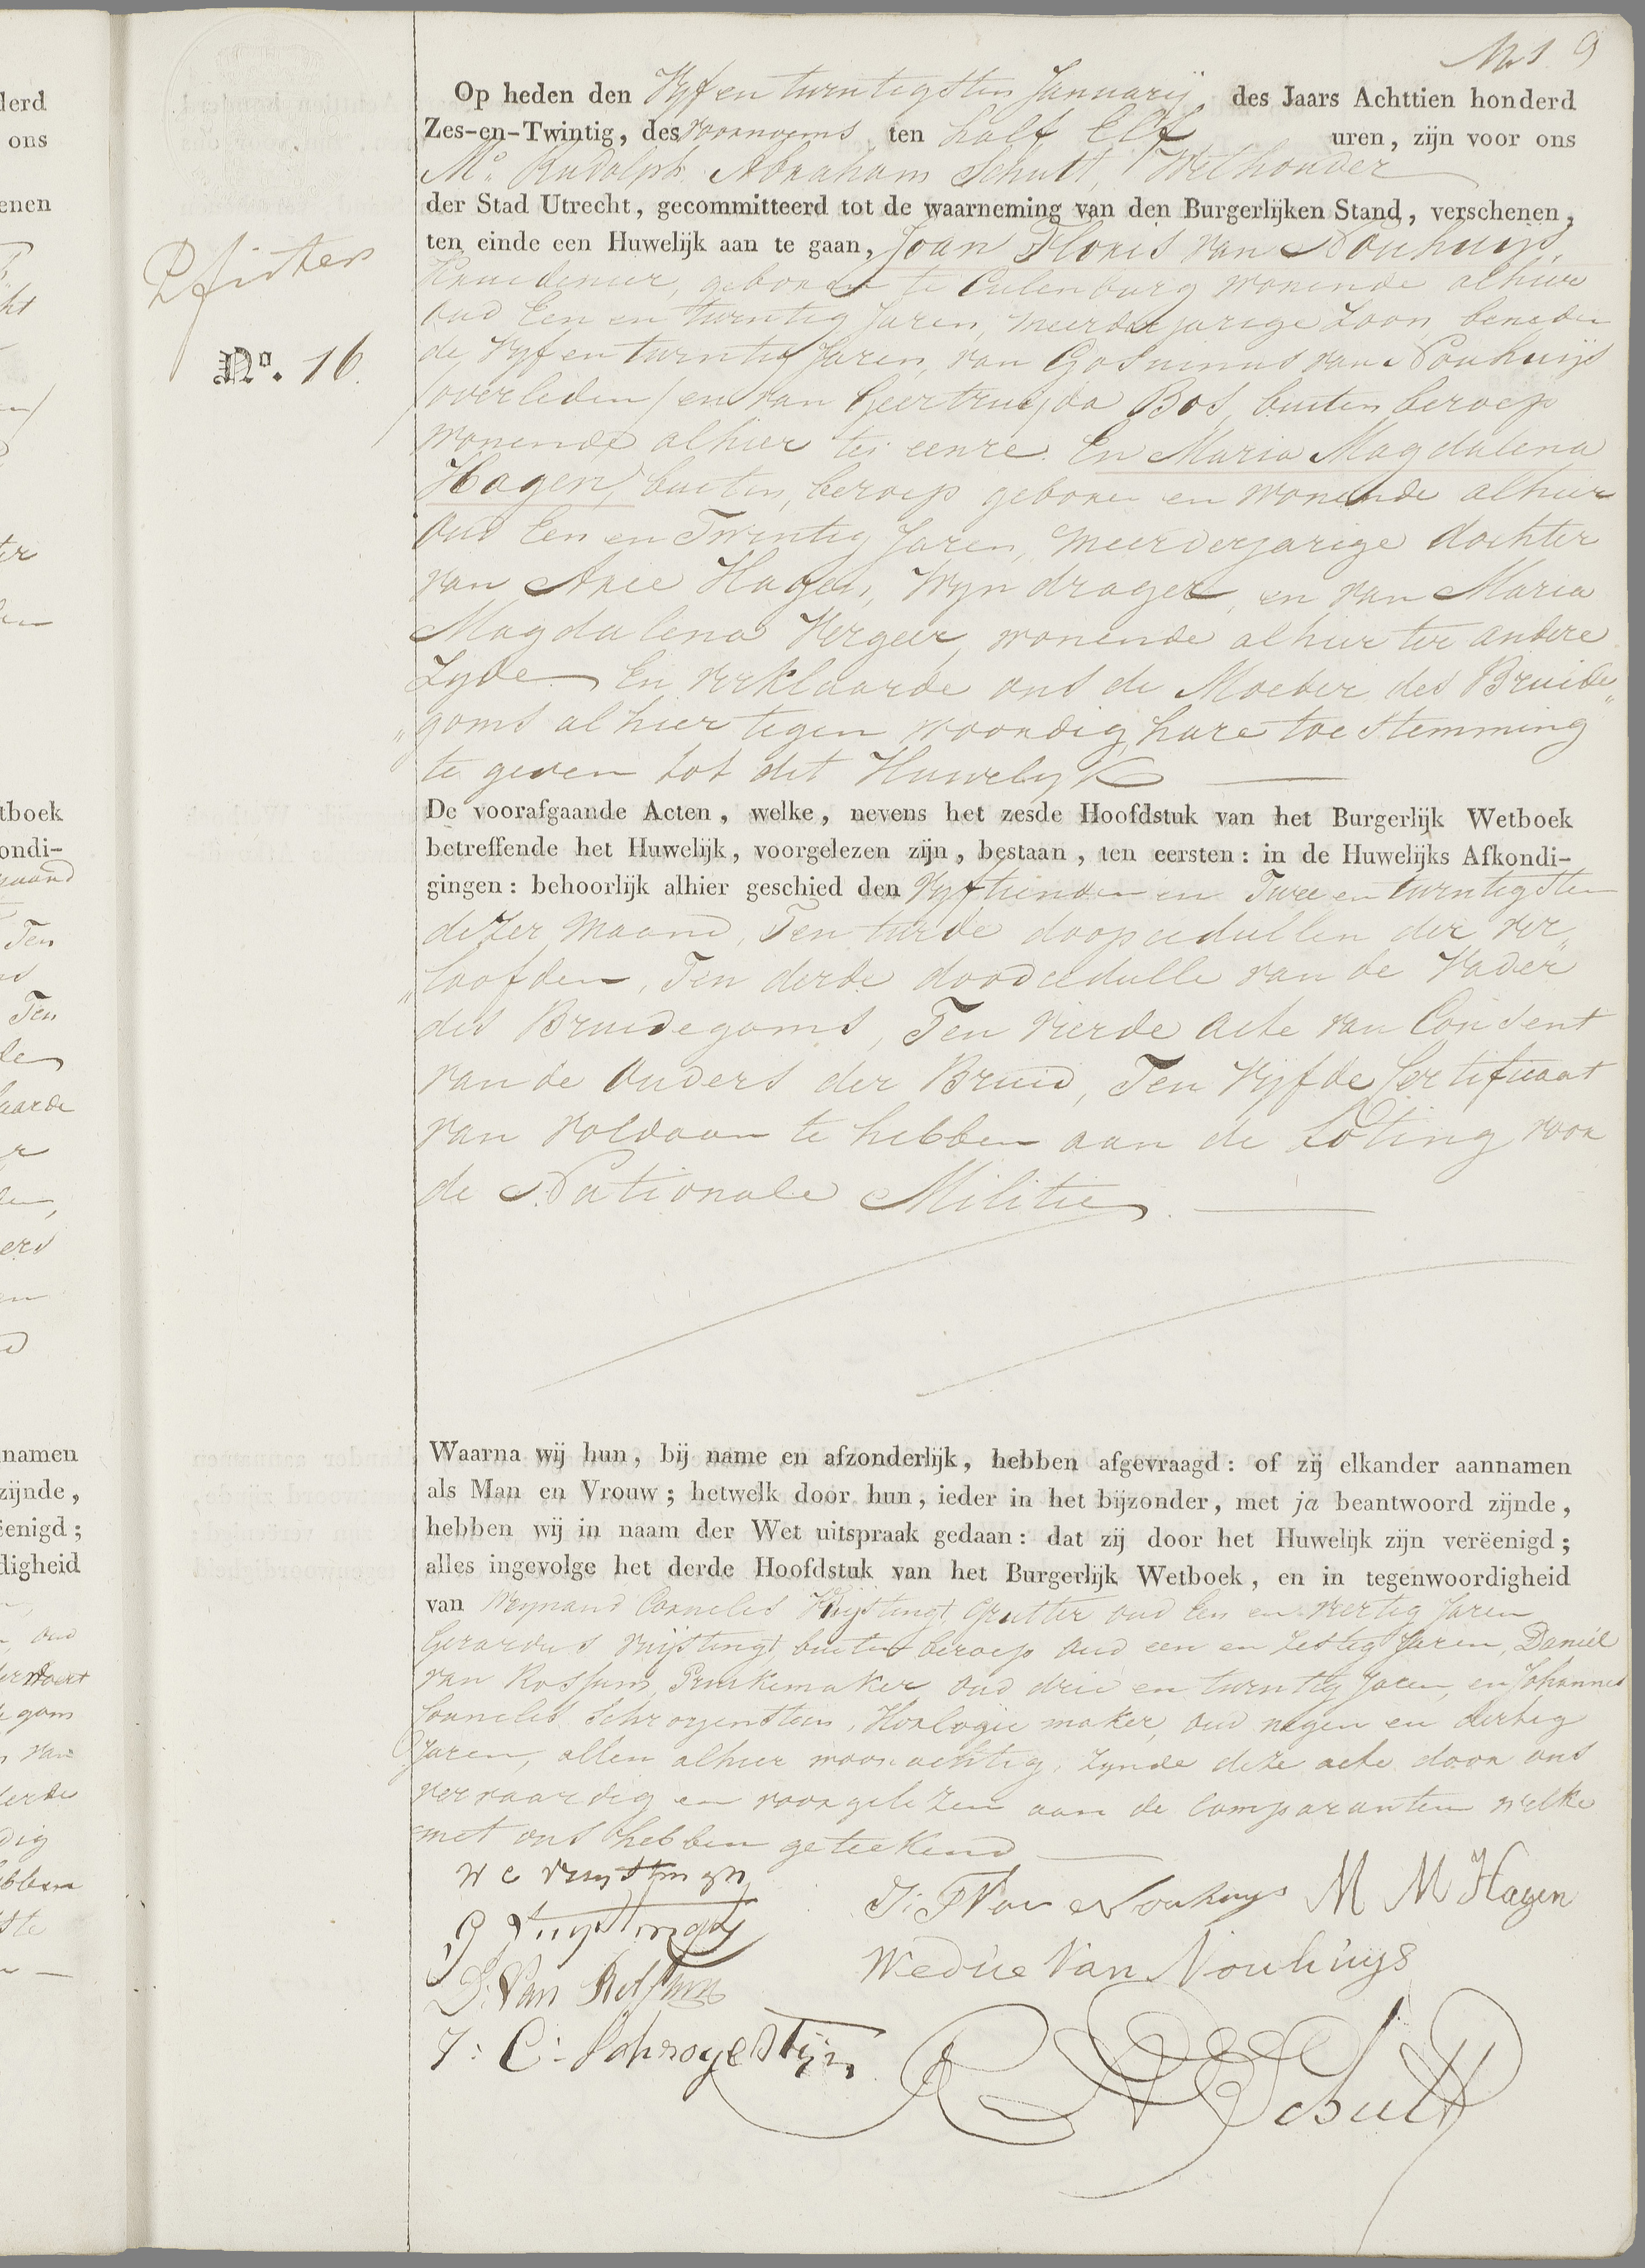 9
Op heden den Vyf en twintigsten Januarij des Jaars Achttien honderd
Zes-en-Twintig, des voornoems ten half Elf uren, zijn voor ons
Mr. Rudolph Abraham Schutt, Wethouder
der Stad Utrecht, gecommitteerd tot de waarneming van den Burgerlijken Stand, verschenen,
ten einde een Huwelijk aan te gaan, Joan Floris van Nouhuijs,
Kruidenier, geboren te Culenburg wonende alhier
oud Een en twintig Jaren, meerderjarige Zoon beneden
de Vyf en twintig Jaren, van Gosuinus van Nouhuijs
/overleden/ en van Geertruijda Bos, buiten beroep
wonende alhier ter eenre. En Maria Magdalena
Hagen, buiten beroep geboren en wonende alhier
oud Een en Twintig Jaren, meerderjarige dochter
van Arie Hagen, Wyndrager, en van Maria
Magdalena Vergeer, wonende alhier ter andere
Zyde. En verklaarde ons de Moeder des Bruide„
„goms alhier tegenwoordig hare toestemming
te geven tot dit Huwelyk
De voorafgaande Acten, welke, nevens het zesde Hoofdstuk van het Burgerlijk Wetboek
betreffende het Huwelijk, voorgelezen zijn, bestaan, ten eersten: in de Huwelijks Afkondi-
gingen: behoorlijk alhier geschied den Vyftienden en Twee en twintigsten
dezer Maand, Ten twede doopcedullen der ver„
„loofden, Ten derde doodcedulle van de Vader
des Bruidegoms, Ten vierde Acte van Consent
van de Ouders der Bruid, Ten Vyfde Certificaat
van voldaan te hebben aan de Loting voor
de Nationale Militie.
No. 16.
Waarna wij hun, bij name en afzonderlijk, hebben afgevraagd: of zij elkander aannamen
als Man en Vrouw; hetwelk door hun, ieder in het bijzonder, met ja beantwoord zijnde,
hebben wij in naam der Wet uitspraak gedaan: dat zij door het Huwelijk zijn verëenigd;
alles ingevolge het derde Hoofdstuk van het Burgerlijk Wetboek, en in tegenwoordigheid
van Wynand Cornelis Grutter oud Een en veertig Jaren
Gerardus buiten beroep oud een en zestig Jaren, Daniël
van Rossum, Pruikemaker oud drie en twintig Jaren, en Johannes
Cornelis Schroyensteen, Horlogie maker, oud negen en dertig
Jaren, allen alhier woonachtig, zynde deze acte door ons
vervaardig en voorgelezen aan de Comparanten welke
met ons hebben geteekend
J: F Van Nouhuys M M Hagen
Wedúe Van Nouhúys
D. Van Rossum
J: C: Schroyestijn
R A Schutt